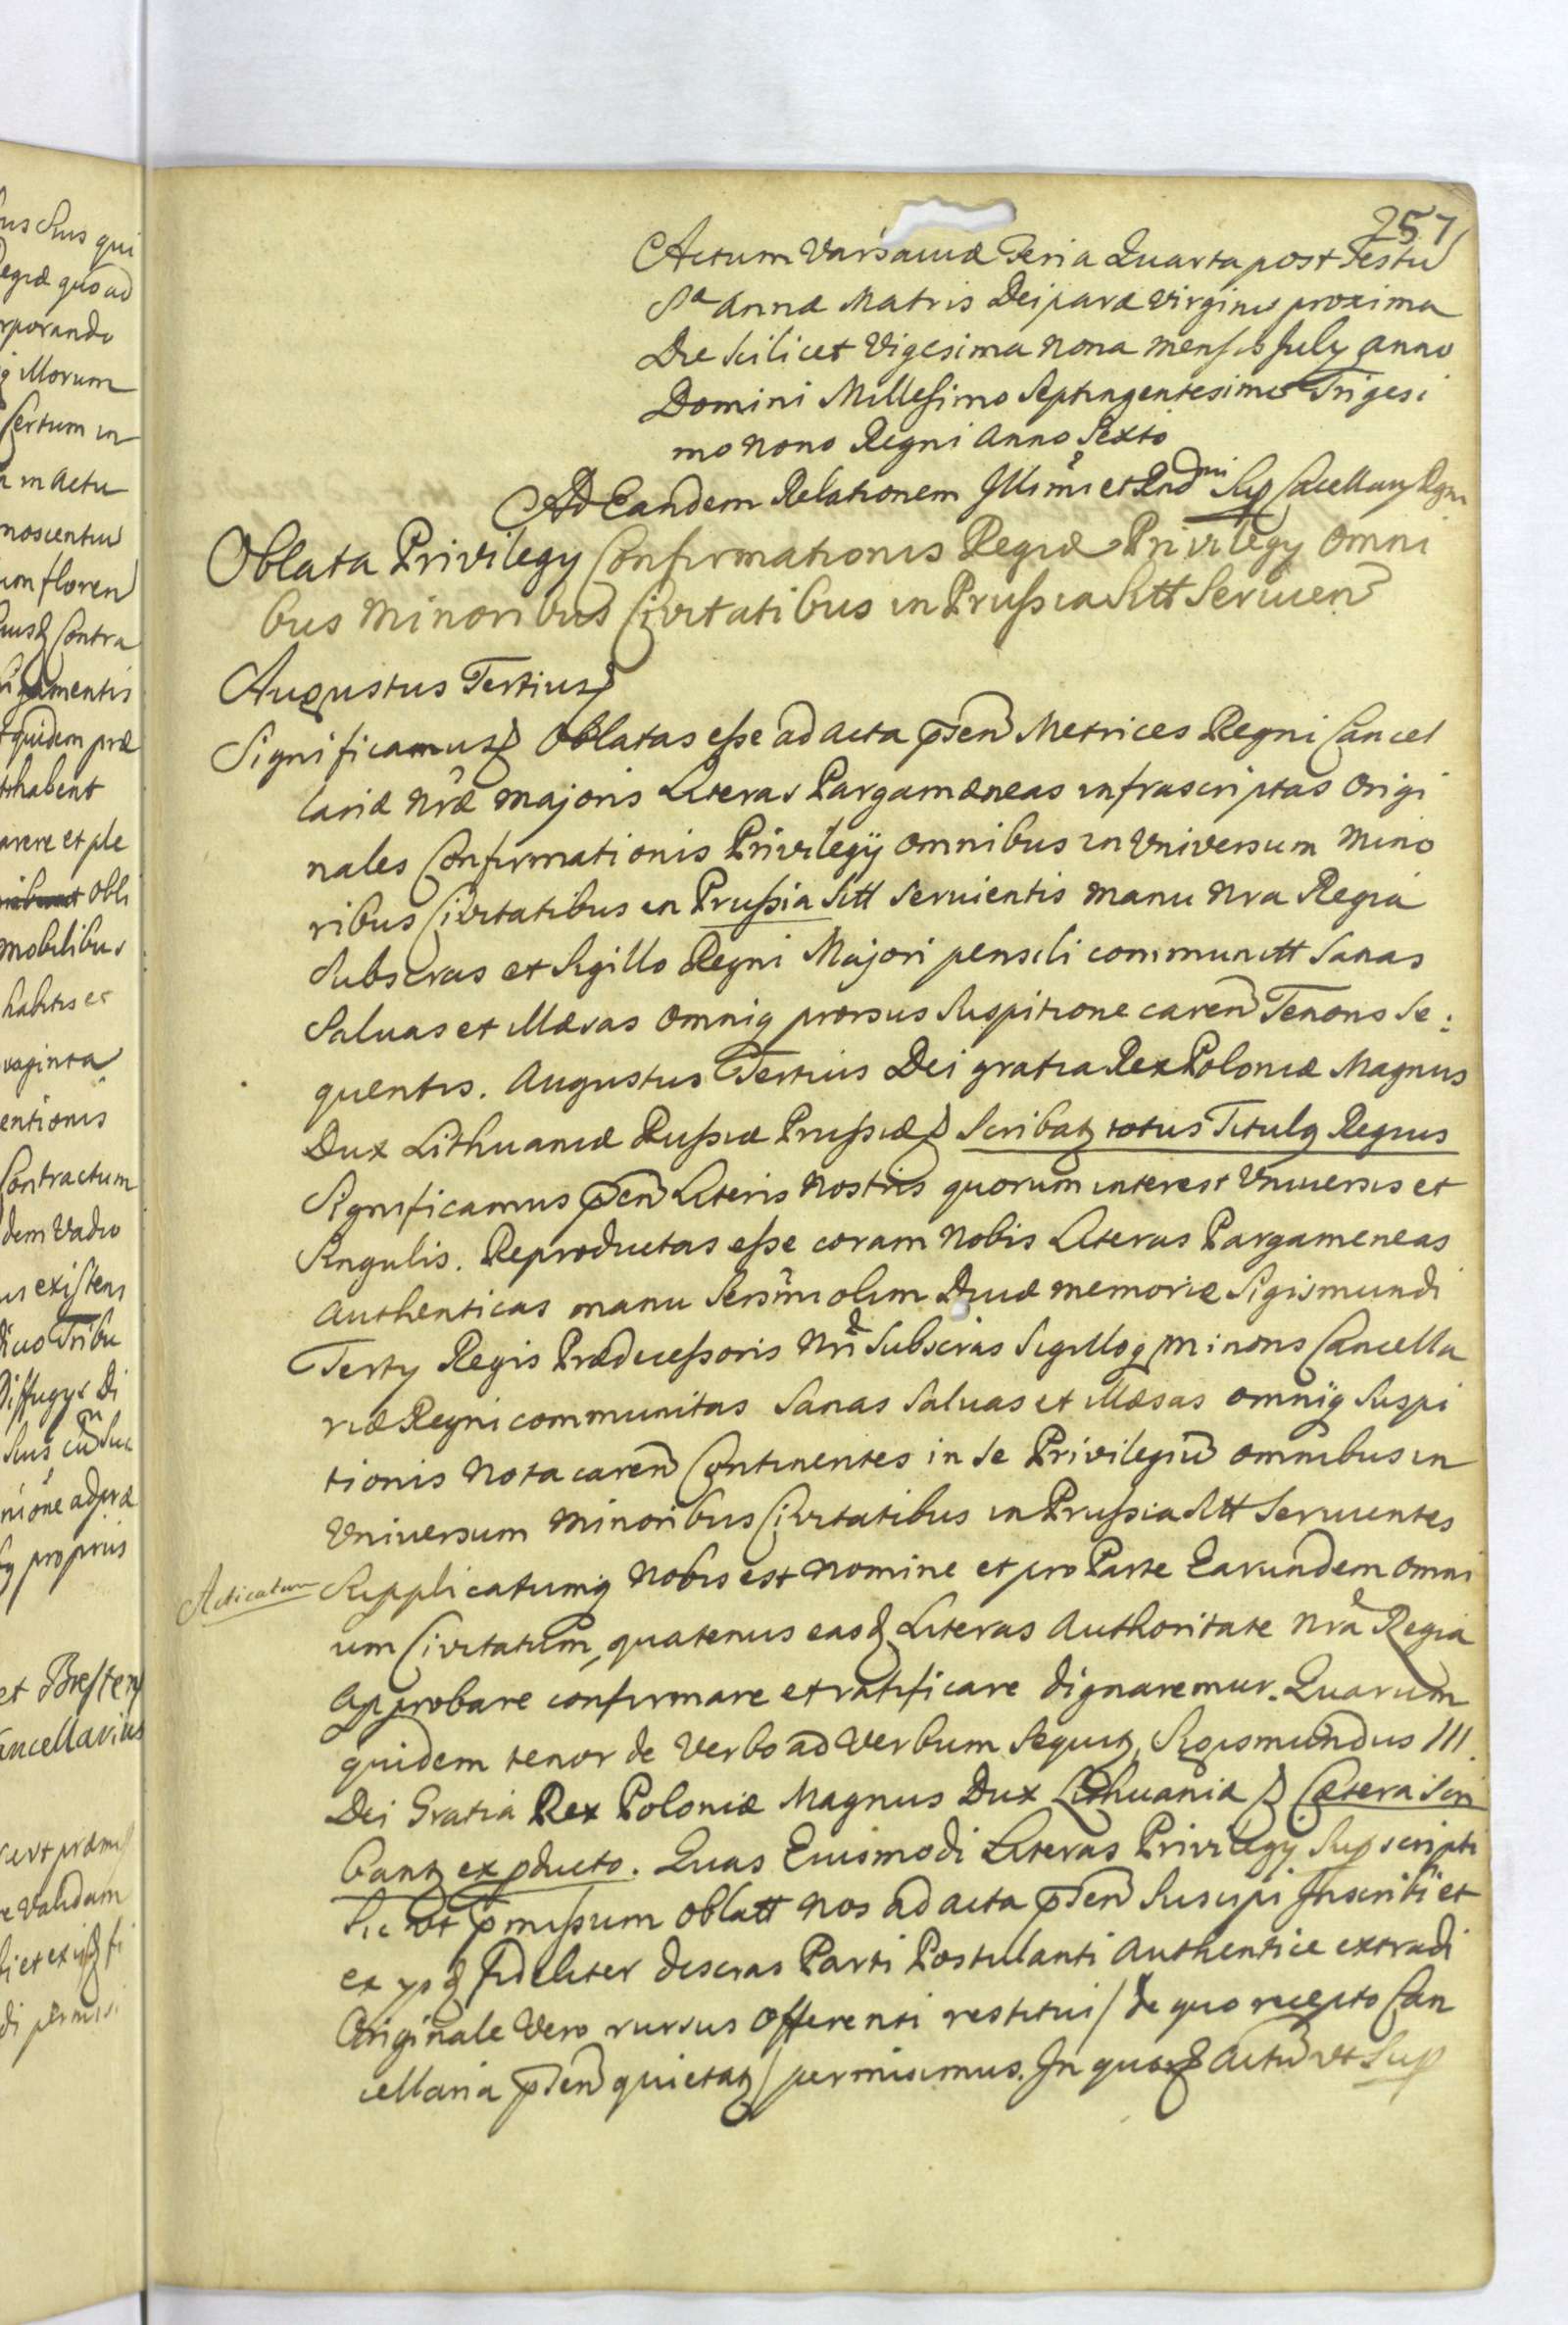 257
Actum Varsaviæ Feria Quarta post Festū
Sæ Annæ Matris Deiparæ Virginis proxima
Die scilicet Vigesima nona mensis July Anno
Domini Millesimo Septingentesimo Trigesi
mo nono Regni Anno Sexto
Ad Eandem Relationem Illmi et Rndmi Sup Cancellary Regni
Oblata Privilegy Confirmationis Regiæ Privilegy Omni
bus Minoribus Civitatibus in Prussia Sitt Servien
Augustus Tertius
Significamus Oblatas esse ad acta pñen Metrices Regni Cancel
lariæ nræ majoris Literas Pargamæneas infrascriptas Origi
nales Confirmationis Privilegÿ omnibus in Universum Mino
ribus Civitatibus in Prussia Sitt Servientis manu nra Regia
Subscras et Sigillo Regni Majori pensili communitt Sanas
Salvas et Illæsas omniq prorsus Suspitione caren Tenoris Se:
quentis. Augustus Tertius Dei gratia Rex Poloniæ Magnus
Dux Lithuaniæ Russiæ Prussiæ Scribatz totus Titulq Regius
Significamus pñen Literis Nostris quorum interest Universis et
Singulis. Reproductas esse coram Nobis Literas Pargameneas
authenticas manu Sersmi olim Divæ memoriæ Sigismundi
Terty Regis Prædecessoris Nri Subscras Sigilloq minoris Cancella
riæ Regni communitas Sanas Salvas et Illæsas omniq Suspi
tionis Nota caren Continentes in Se Privilegiū omnibus in
Universum Minoribus Civitatibus in Prussia Sitt Servientes
Acticatum
Supplicatumq Nobis est Nomine et pro Parte Earundem omni
um Civitatum, quatenus easq Literas Authoritate Nra Regia
Approbare confirmare et ratificare dignaremur. Quarum
quidem tenor de Verbo ad Verbum Sequitz, Sigismundus III.
Dei Gratia Rex Poloniæ Magnus Dux Lithuaniæ Cætera Scri
bantz ex pducto. Quas Eiusmodi Literas Privilegy Sup scripti
Sic ut pmissum oblatt Nos ad acta pñen Suscipi Inscribi et
ex ysq fideliter descras Parti Postulanti Authentice extradi
Originale Vero rursus Offerenti restitui / de quo recepto Can
cellaria pñen quietatz / permisimus. In quorz Actū ut Sup